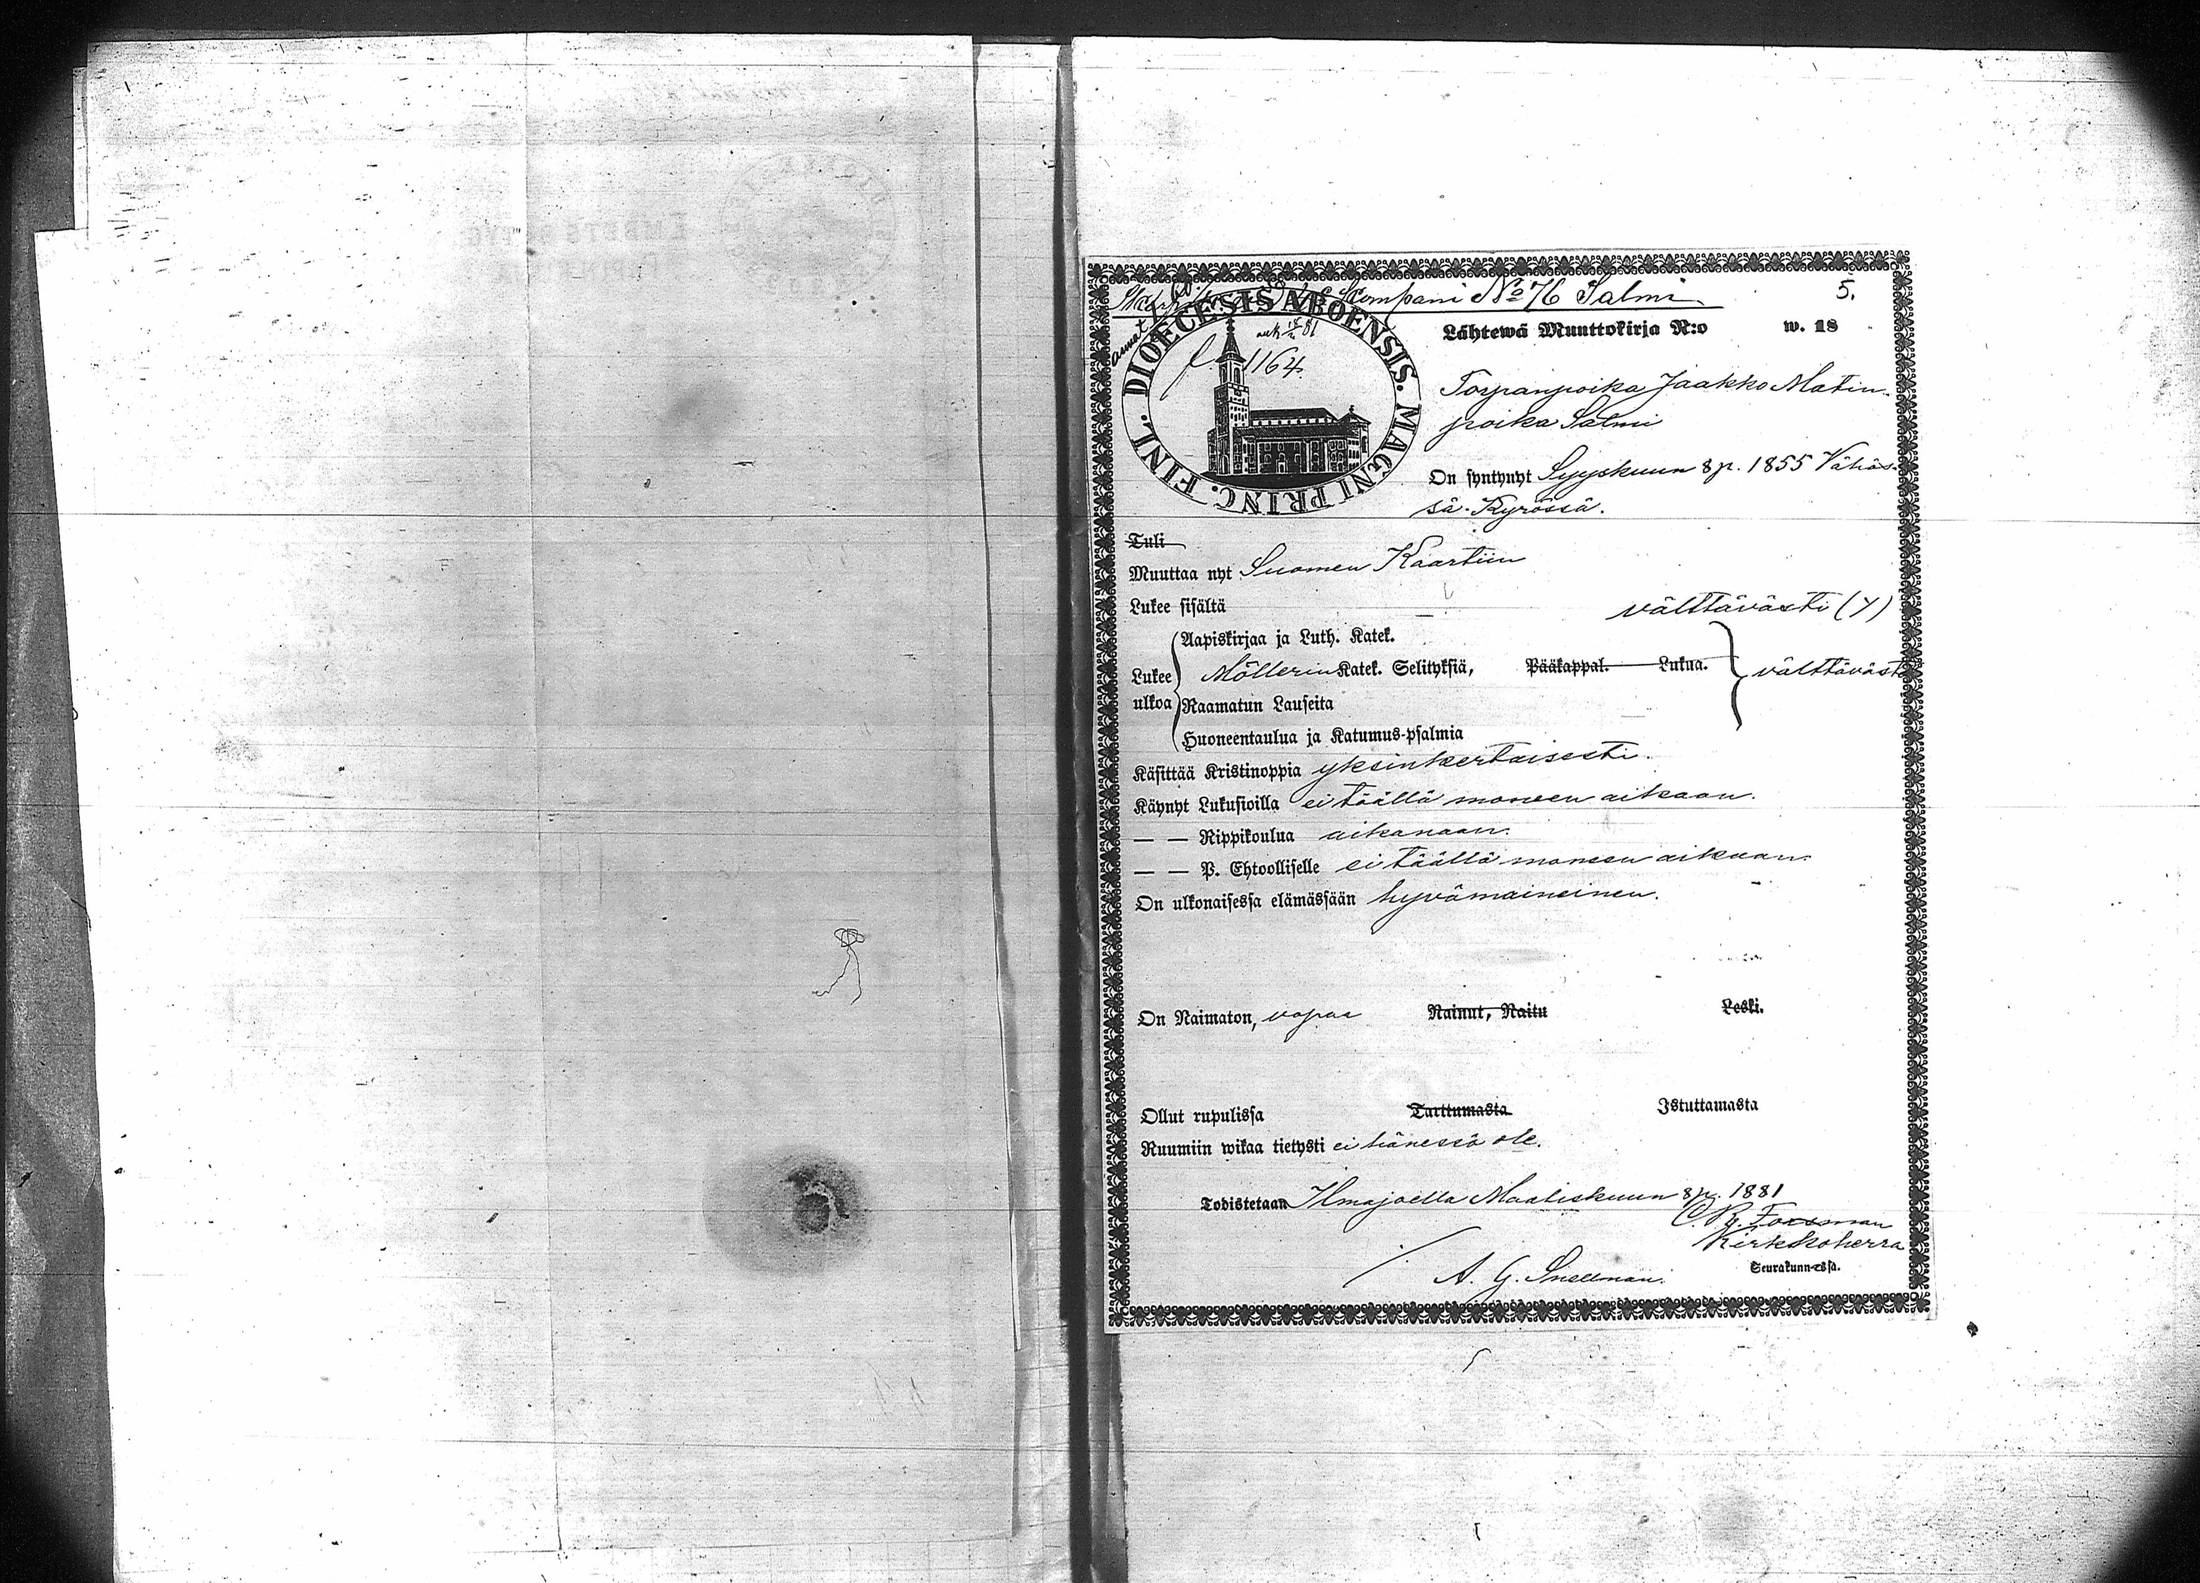 Kompani No 76 Salmi
5.
FINL. DIOECESIS ABOENSIS. MAGNI PRINC.
1164
Lähtewä Muuttokirja N:o w. 18
Torpanpoika Jaakko Matin-
poika Salmi
On syntynyt Syyskuun 8 p. 1855 Vähäs-
sä-Kyrössä.
Tuli
Muuttaa nyt Suomen Kaartiin
Lukee sisältä välttävästi (y)
Aapiskirjaa ja Luth. Katek.
Lukee Möllerin Katek. Selityksiä, Pääkappal. Lukua. välttäväst
ulkoa Raamatun Lauseita
Huoneentaulua ja Katumus-psalmia
Käsittää Kristinoppia yksinkertaisesti.
Käynyt Lukusioilla ei täällä moneen aikaan.
— — Rippikoulua aikanaan.
— — P. Ehtoolliselle ei täällä moneen aikaan.
On ulkonaisessa elämässään hyvämaineinen.
On Naimaton, vapaa Nainut, Naitu Leski.
Ollut rupulissa Tarttumasta Istuttamasta
Ruumiin wikaa tietysti ei hänessä ole.
Todistetaan Ilmajoella Maaliskuun 8 p. 1881
C. R. Forsman
Kirkkoherra
Seurakunn-essa.
A. G. Snellman.